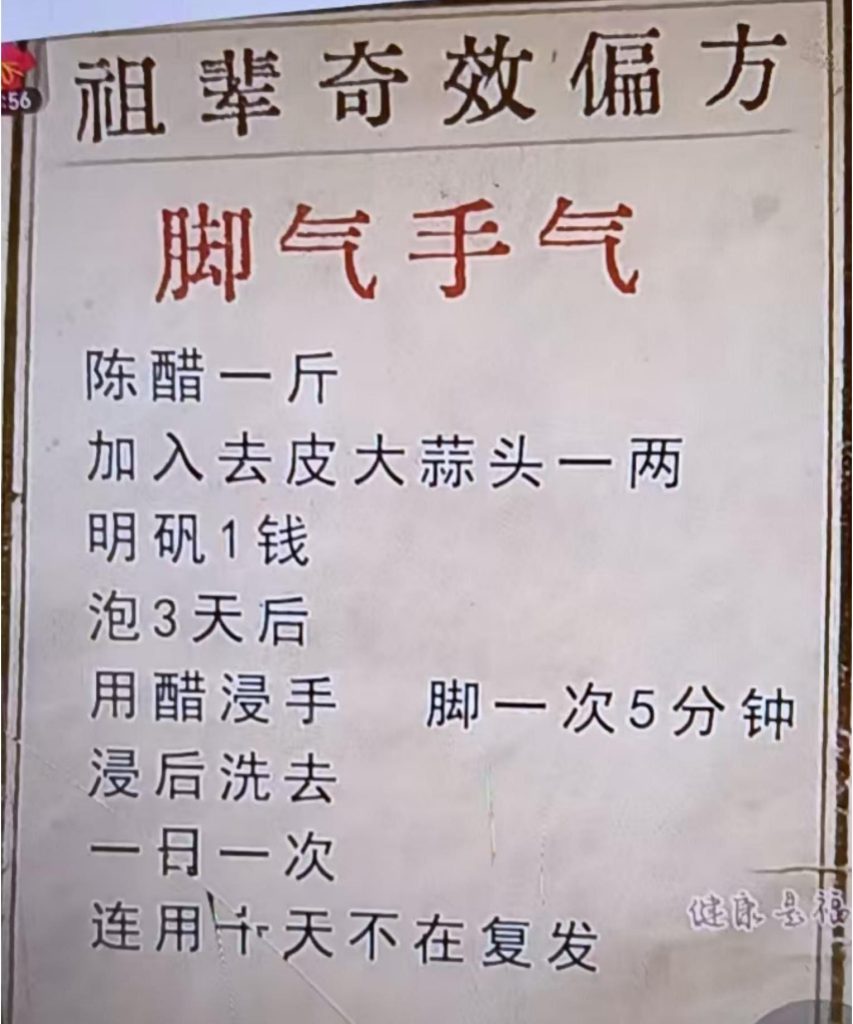 :56
祖辈奇效偏方
脚气手气
陈醋一斤
加入去皮大蒜头一两
明矾1钱
泡3天后
用醋浸手 脚一次5分钟
浸后洗去
一日一次
连用十天不在复发
健康是福